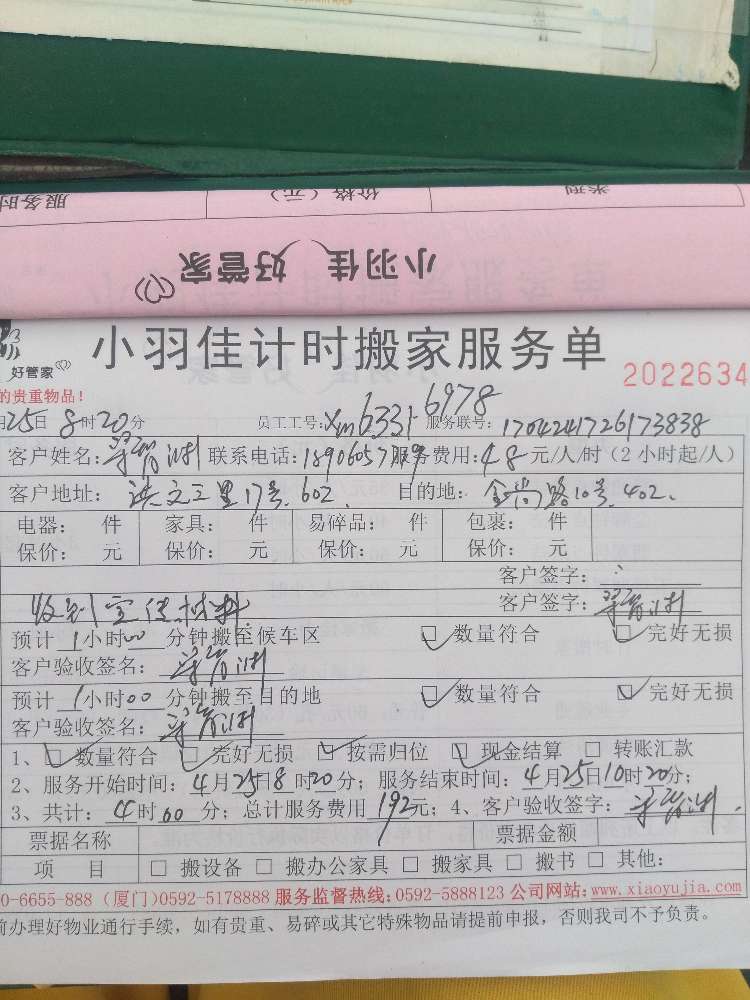 服务时 价格（元） 类型
小羽佳 好管家
小羽佳计时搬家服务单
好管家
2022634
的贵重物品！
月25日 8时20分 员工工号：Xm6331-6978 服务联号：1704241726173838
客户姓名： 联系电话：18906057 服务费用：48元/人/时（2小时起/人）
客户地址：洪文三里17号602、 目的地：金尚路10号402、
电器： 件 家具： 件 易碎品： 件 包裹： 件
保价： 元 保价： 元 保价： 元 保价： 元
客户签字：
收到宣传材料 客户签字：
预计1小时00分钟搬至候车区 数量符合 完好无损
客户验收签名：
预计1小时00分钟搬至目的地 数量符合 完好无损
客户验收签名：
1、☑数量符合 ☑完好无损 ☑按需归位 ☑现金结算 □转账汇款
2、服务开始时间：4月25日8时20分；服务结束时间：4月25日10时20分；
3、共计：4时00分；总计服务费用192元；4、客户验收签字：
票据名称 票据金额
项 目 □搬设备 □搬办公家具 □搬家具 □搬书 □其他：
0-6655-888（厦门）0592-5178888 服务监督热线：0592-5888123 公司网站：www.xiaoyujia.com
前办理好物业通行手续，如有贵重、易碎或其它特殊物品请提前申报，否则我司不予负责。